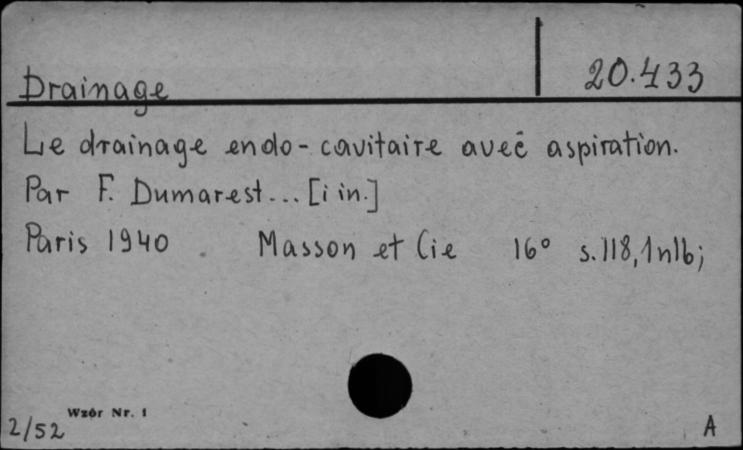 Drainage 20.433
Le drainage endo-cavitaire aveć aspiration.
Par F. Dumarest... [i in.]
Paris 1940 Masson et Cie 16° s.118,1nlb;
Wzór Nr. 1
2/52 A